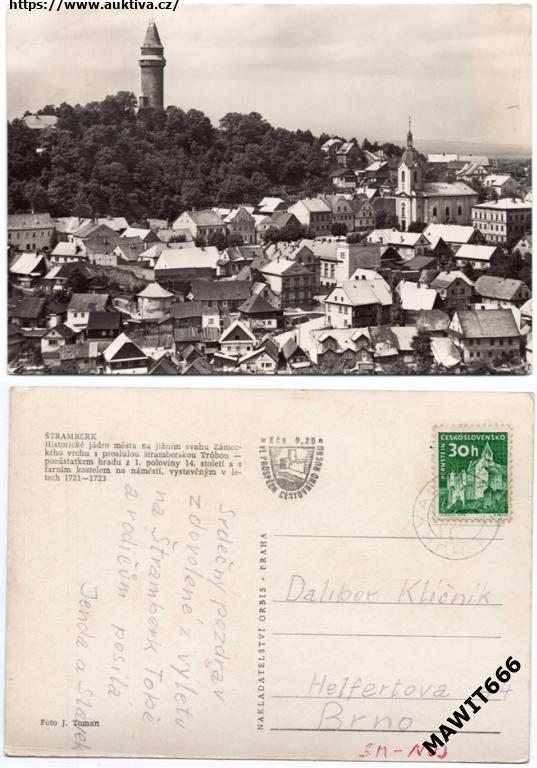 https://www.auktiva.cz/
ŠTRAMBERK
Historické jádro města na jižním svahu Zámec-
kého vrchu s proslulou štramberskou Trúbou —
pozůstatkem hradu z 1. poloviny 14. století a s
farním kostelem na náměstí, vystavěným v le-
tech 1721—1723
Kčs 0,20
VE PROSPĚCH CESTOVNÍHO RUCHU
ČESKOSLOVENSKO
30h
Srdečný pozdrav
z dovolené z výletu
na Štramberk Tobě
a rodičům posílá
Jenda a Slávek
NAKLADATELSTVÍ ORBIS - PRAHA
Dalibor Klíčník
Helfertova
Brno
Foto J. Toman
MAWIT666